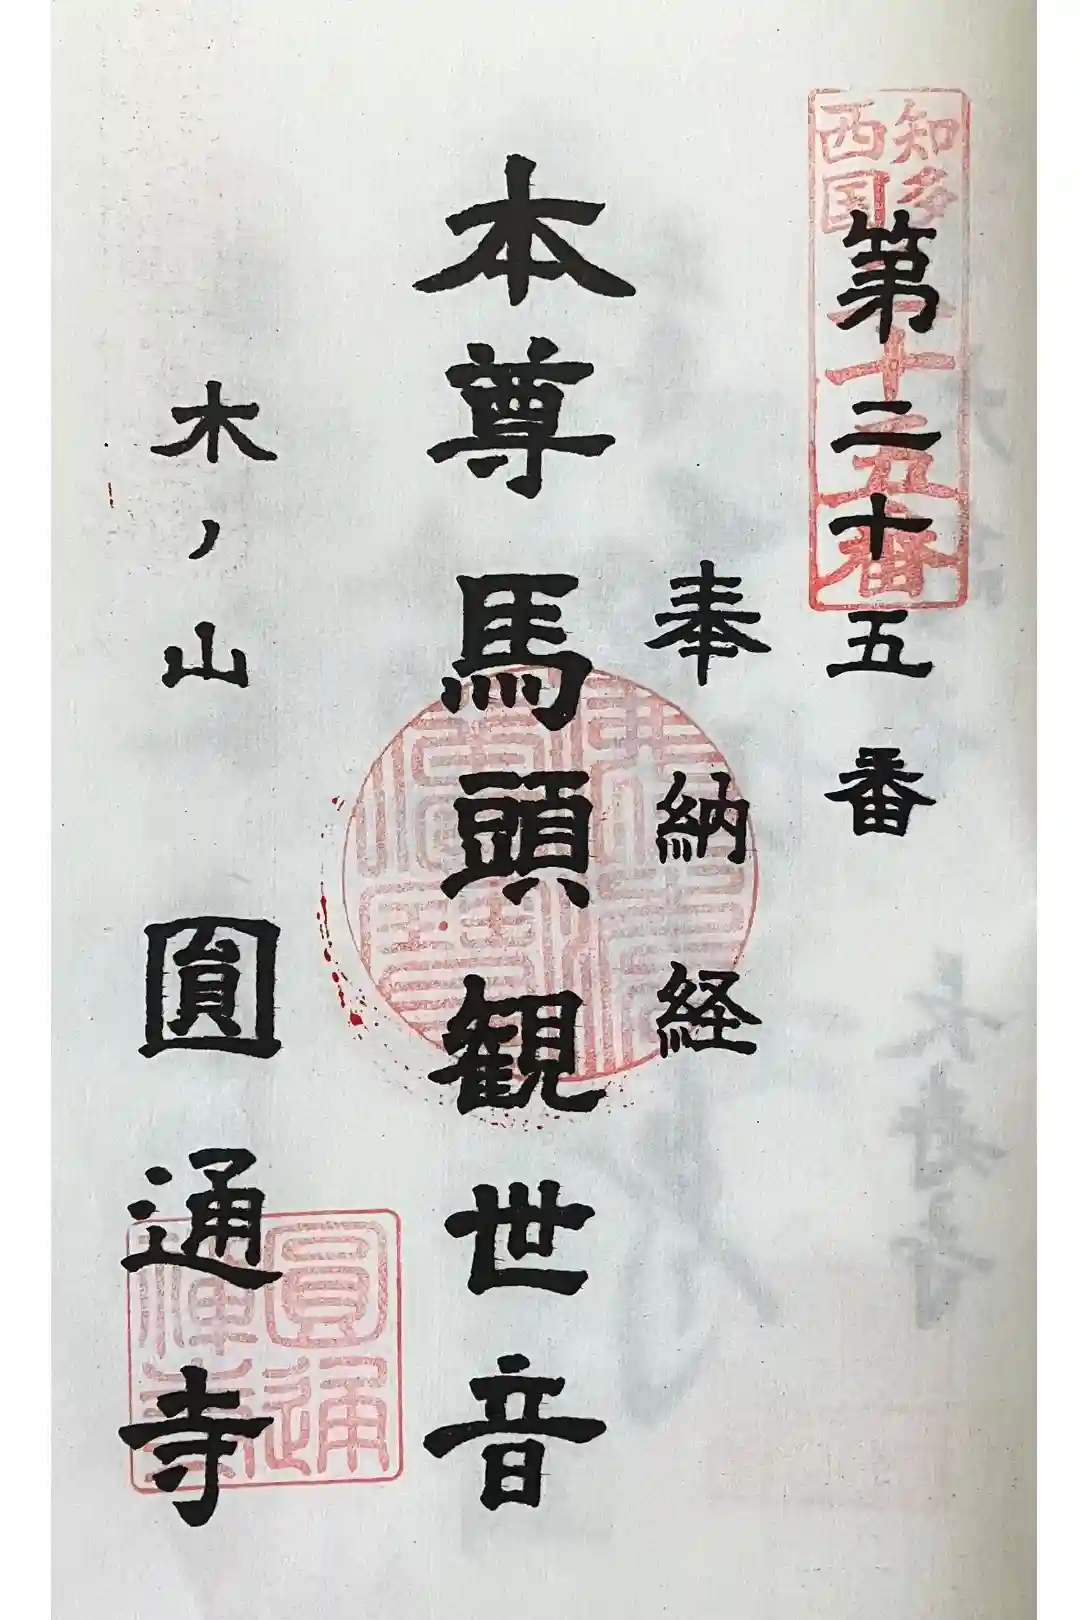 知多
西国
二十五番
第二十五番
奉納経
本尊馬頭観世音
木ノ山
圓通寺
圓通
禅寺